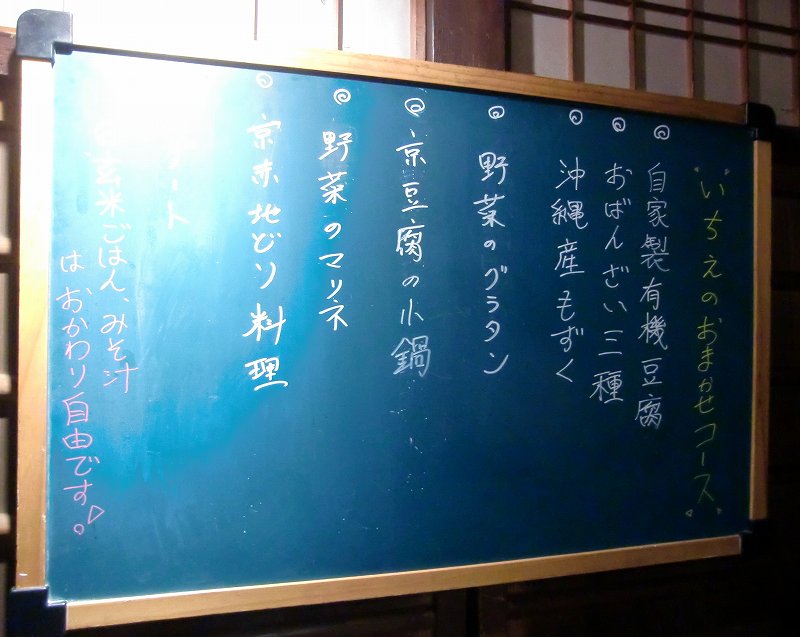 "いちえのおまかせコース"
◎自家製有機豆腐
◎おばんざい三種
◎沖縄産もずく
◎野菜のグラタン
◎京豆腐の小鍋
◎野菜のマリネ
◎京赤地どり料理
ート
玄米ごはん、みそ汁
はおかわり自由です。